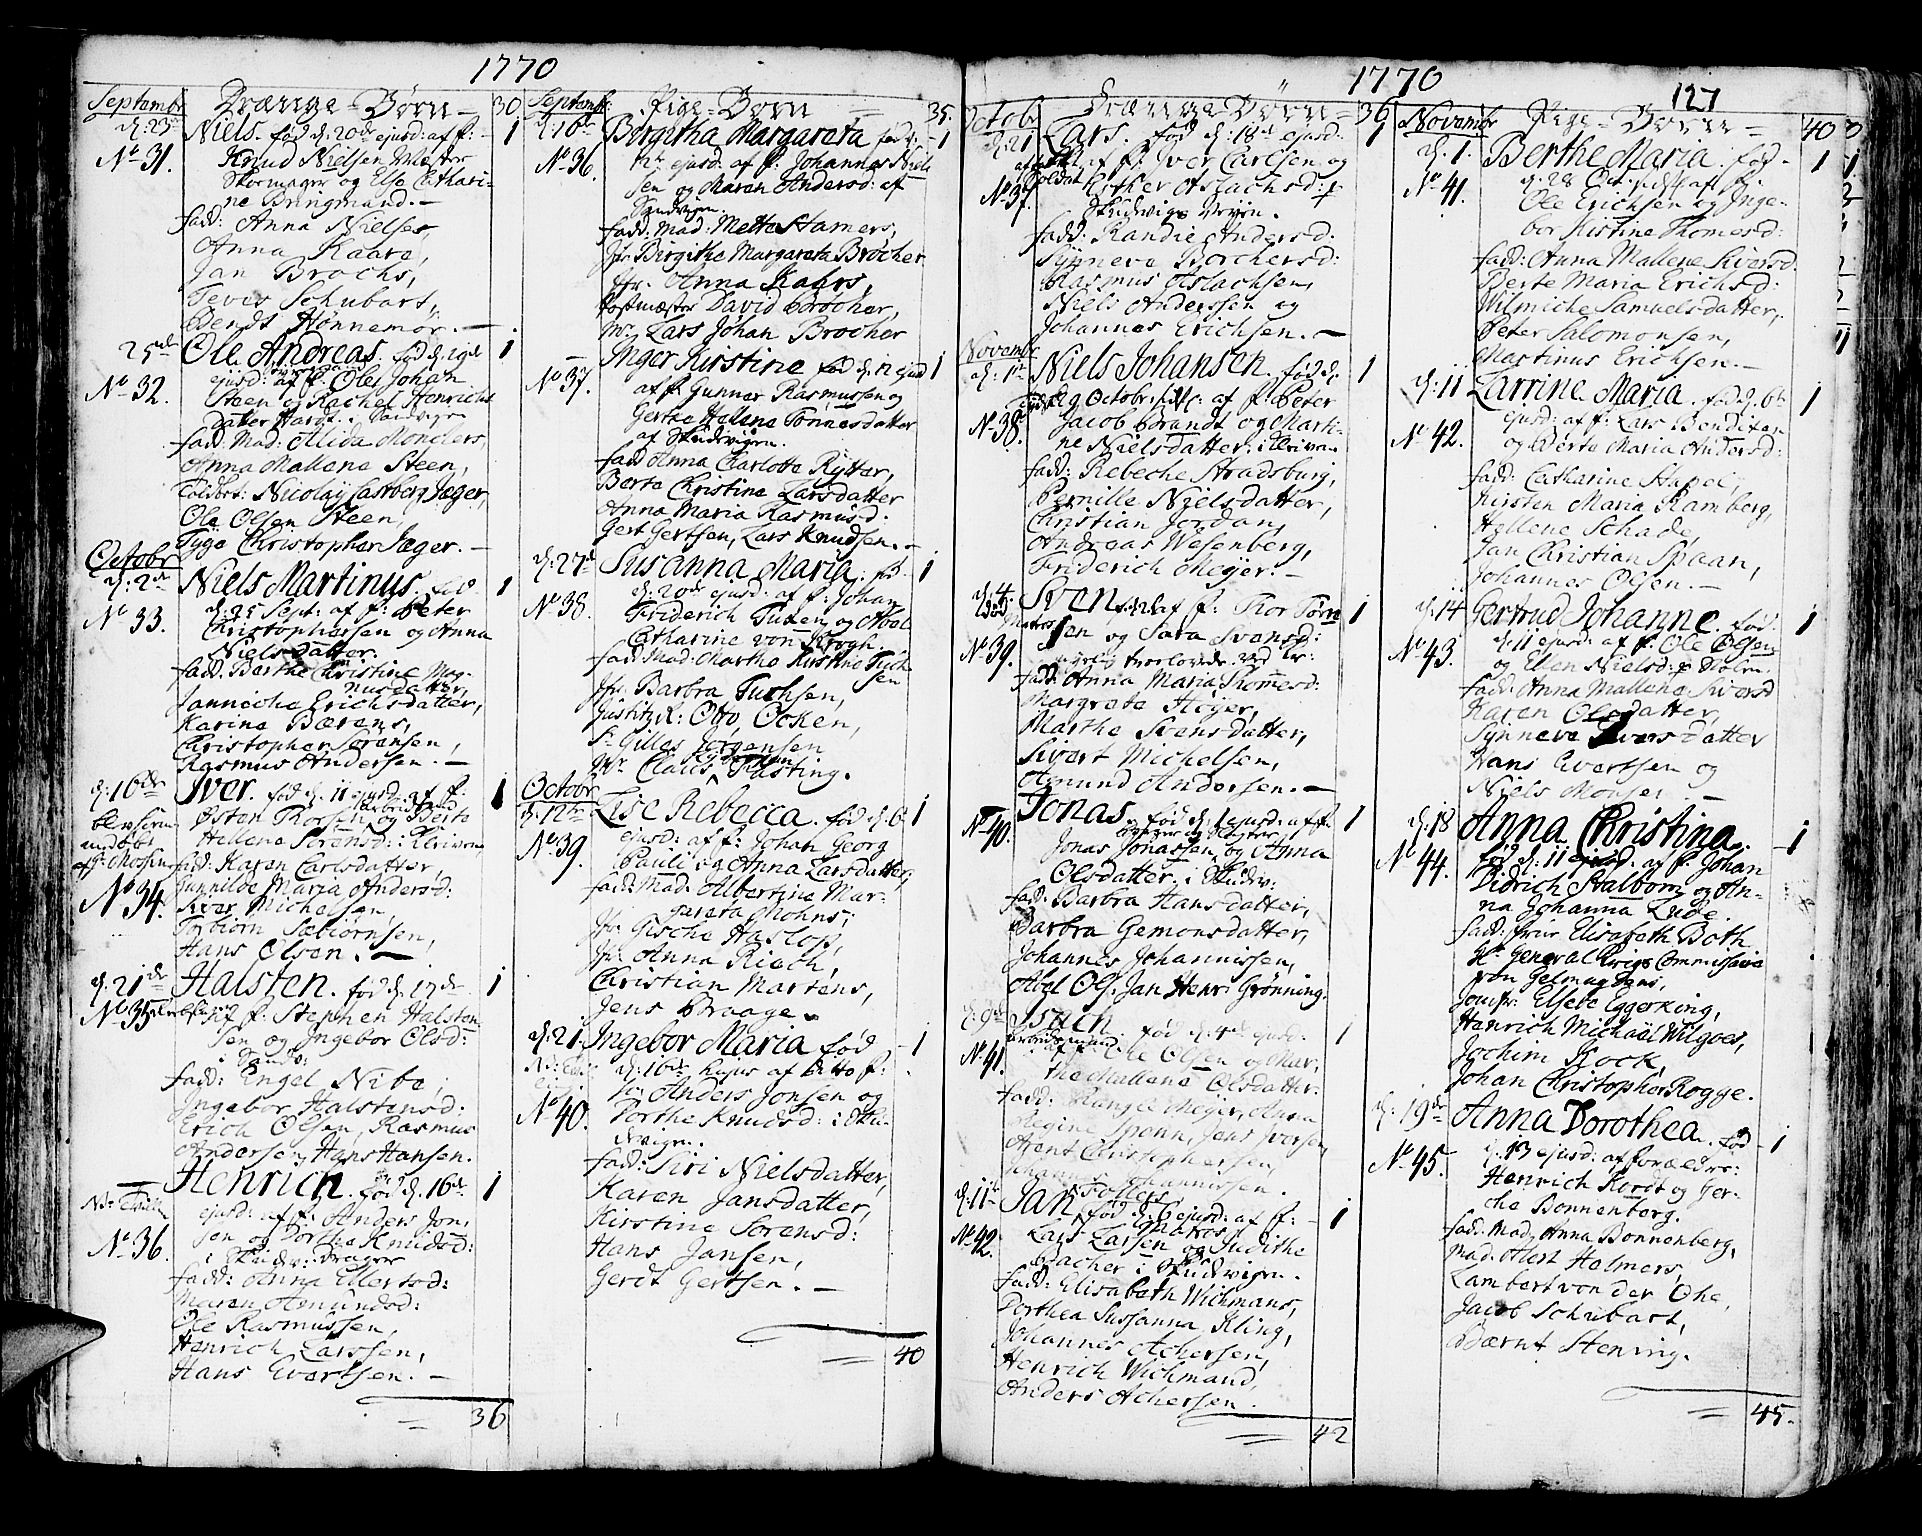 1770
Septembr Drænge-Børn 30
d. 23de Niels. fød d. 20de ejusd: af f: 1
No 31. Knud Nielsen Mæster
Skomager og Else Cathari-
ne Bringmand.
fadd: Anna Nielser,
Anna Kaare,
Jan Brochs,
Teves Schubart,
Bendt Hønnemor.
25de Ole Andreas. fød d. 19de 1
No 32. ejusd: af f: Ole Johan
Steen og Rachel Henrichs
datter Hardt. i Sandvigen
fadd: Mad: Alida Monclers,
Anna Mallene Steen,
Toldbet: Nicolay Castberg Jæger,
Ole Olsen Steen,
Tyge Christopher Jæger.
Octobr
d. 2de Niels Martinus. fød 1
No 33. d. 25 Sept: af f: Peter
Christophersen og Anna
Nielsdatter.
fadd: Berthe Christine Mag-
nusdatter,
Janniche Erichsdatter,
Karine Bærens,
Christopher Sørensen,
Rasmus Andersen.
d. 16de Iver. fød d. 11 ejusd: af f: 1
Østen Thorsen og Berte
Hellene Sørensd:
fad: Karen Carlsdatter,
No 34. Gunnilde Maria Andersd:
Iver Michelsen,
Torbiørn Sæbiørnsen,
Hans Olsen.
d. 21de Halsten. fød d. 17de 1
No 35. af f: Stephen Halsten
sen og Ingebor Olsd:
i Sandv:
fadd: Engel Nibe,
Ingebor Halstensd:
Erich Olsen, Rasmus
Andersen, Hans Hansen.
Henrich. fød d. 16de 1
No 36. ejusd: af f: Anders Jon,
sen og Dorthe Knudsd:
i Skudv: Drager
fadd: Anna Ellersd:
Maren Amundsd:
Ole Rasmussen,
Henrich Larssen,
Hans Evertsen.
36
Septembr: Pige-Børn 35.
d. 16de Birgitha Margareta fød d. 1
No 36. 12te ejusd. af f: Johannes Niel-
sen og Maren Andersd: af
Sandvigen.
fadd: Mad: Mette Hamers,
Jfr Birgithe Margareta Brocher
Jfr. Anna Kahrs,
Postmæster David Brocher,
Mr Lars Johan Brocher
Inger Kirstine fød d. 12 ejusd 1
No 37. af f: Gunner Rasmussen og
Gerthe Helene Tønnesdatter
af Skudvigen.
fadd Anna Charlotte Rytter,
Berte Christine Larsdatter
Anna Maria Rasmusd:
Gert Gertsen, Lars Knudsen.
d. 27de Susanna Maria. fød 1
No 38. d. 20de ejusd: af f: Johan
Friderich Tuxen og Abel
Catharine von Krogh.
fadd: Mad: Martha Kirstine Tych
sen
Jfr. Barbra Tuchsen,
Justitzr: Otto Ocken,
Sr Gilles Jørgensen
Mr. Claus Fasting.
Octobr
d. 12te Lise Rebecca. fød d. 6. 1
No 39. ejusd: af f: Johan Georg
Pauli og Anna Larsdatter,
fadd: Mad: Albertine Mar-
gareta Mohns,
Jfr. Gische Haslop,
Jfr. Anna Riech,
Christian Martens,
Jens Braage.
d. 21. Ingebor Maria fød 1
d. 16de hujus af f:
No 40. Anders Jonsen og
Dorthe Knudsd: i Sku-
dvigen.
fadd: Siri Nielsdatter,
Karen Jansdatter,
Kirstine Sørensd:
Hans Jansen,
Gerdt Gertsen.
40
1770
127
Octob Drænge Børn 36
d. 21 Lars. fød d. 18de ejusd. 1
af f: Iver Carlsen og
Soldat Esther Aslachsd:
No 37. Skudvigs Veyen.
fadd: Randie Andersd.
Synneve Borchersd:
Rasmus Aslachsen,
Niels Anderssen og
Johannes Erichsen.
Novembr
d. 1te Niels Johansen. fød d. 1
29 Octobr: af f: Peter
No 38. Jacob Brandt og Marti-
ne Nielsdatter.
fadd: Rebeche Stradsburg,
Pernille Nielsdatter,
Christian Jordan,
Andreas Wesenberg,
Friderich Meyer.
d. 4. Sven af f: Thor Tørre 1
sen og Sara Svensd:
No 39. fadd: Anna Maria Thomesd:
Margrete Heger,
Marthe Svensdatter,
Sivert Michelsen,
Amund Andersen.
No 40. Jonas. fød d. 1 ejusd: af f: 1
Jonas Jonassen og Anna
Olsdatter. i Skudv:
fadd: Barbra Hansdatter,
Barbra Gemonsdatter,
Johannes Johannissen,
Abel Ols: Jan Henr: Grønning.
d. 9de Isach. fød d. 4de ejusd: 1
No 41. af f: Ole Olsen og Mar,
the Mallene Olsdatter.
fadd: Meyer, Anna
Regine Spenn, Jens Iversen,
Arent Christophersen,
Johannes Johannissen.
d. 11te Jan fød d. 6 ejusd: af f: 1
No 42. Lars Larsen og Judithe
Bacher i Skudvigen.
fadd: Elisabeth Wichmans,
Dorthea Susanna Kling,
Johannes Achersen,
Henrich Wichmand,
Anders Achersen.
42
Novembr Pige-Børn 40
d. 1. Berthe Maria. fød 1
No 41. d. 28 Oct: af f:
Ole Erichsen og Inge-
bor Kistine Thomesd:
fad: Anna Mallene Siversd.
Berte Maria Erichsd:
Wilmiche Samuelsdatter,
Peter Salomonsen,
Martinus Erichsen.
d. 11 Larrine Maria. fød d. 6te 1
No 42. ejusd: af f: Lars Bendixen
og Berte Maria Andersd:
fadd: Catharine Stube,
Kirsten Maria Ramberg,
Hellene Schade,
Jan Christian Spaan,
Johannes Olsen.
d. 14 Gertrud Johanne. fød 1
No 43. d. 11 ejusd: af f: Ole Olsen
og Ellen Nielsd: Holm.
fadd: Anna Mallene Siversd
Karen Olsdatter,
Synneve Iversdatter
Hans Evertsen og
Niels Monsen
d. 18 Anna Christina. 1
No 44. fød d. 11 ejusd: af f: Johan
Didrich Stalbom og An-
na Johanna Lude.
fadd: frue Elisabeth Both
Hr General Krigs Commissaire
von Gelmuydens,
Jomfr: Elsebe Eggerking,
Hanrich Michael Wilgoes,
Jochim Kock,
Johan Christopher Rogge.
d. 19de Anna Dorothea. fød 1
No 45. d. 13 ejusd: af forældre:
Henrich Kordt og Ger-
che Bonnenberg.
fadd: Mad. Anna Bonnenberg,
Mad: Alert Holmers,
Lambert von der Ohe,
Jacob Schubart,
Bærnt Stening.
45.